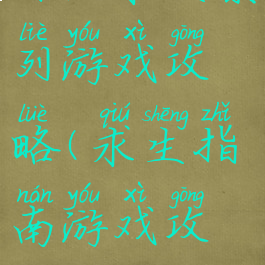 liè yóu xì gōng
列游戏攻
lüè qiú shēng zhǐ
略(求生指
nán yóu xì gōng
南游戏攻